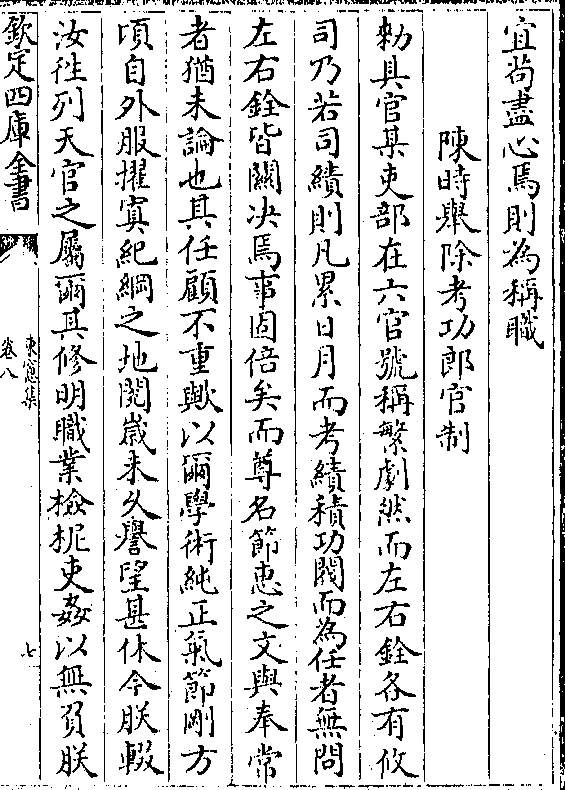 宜茍盡心焉則為稱職
陳時舉除考功郎官制
勅具官某吏部在六官號稱繁劇然而左右銓各有攸
司乃若司績則凡累日月而考績積功閥而為任者無問
左右銓皆關决焉事固倍矣而尊名節恵之文與奉常
者猶未論也其任顧不重歟以爾學術純正氣節剛方
頃自外服擢寘紀綱之地閱嵗未久譽望甚休今朕輟
汝徃列天官之屬爾其修明職業檢柅吏姦以無負朕
欽定四庫全書
東窗集
卷八
七